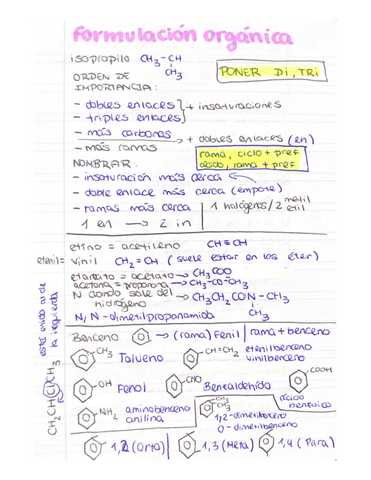 Formulación orgánica
isopropilo CH3-CH
CH3
PONER DI, TRI
ORDEN DE
IMPORTANCIA:
- dobles enlaces } + insaturaciones
- triples enlaces
- más carbonos + dobles enlaces (en)
- más ramas
rama, ciclo + pref
ácido, rama + pref
NOMBRAR:
- insaturación más cerca
- doble enlace más cerca (empate)
- ramas más cerca | 1 halógenos / 2 metil
etil
1 en → 2 in
etino = acetileno CH≡CH
etenil = vinil CH2=CH (suele estar en los éter)
etanato = acetato → CH3COO
acetona = propanona → CH3-CO-CH3
N cuando sale del → CH3CH2CON-CH3
hidrógeno CH3
N, N-dimetilpropanamida
está unido al de
la izquierda
CH2CH(Cl)CH3
Benceno → (rama) Fenil | rama + benceno
CH3 Tolueno
CH=CH2 etenilbenceno
vinilbenceno
OH Fenol
CHO Benzaldehído
COOH
ácido
benzoico
NH2 aminobenceno
anilina
CH3
CH3
1,2-dimetilbenceno
O-dimetilbenceno
1,2 (Orto) | 1,3 (Meta) 1,4 (Para)